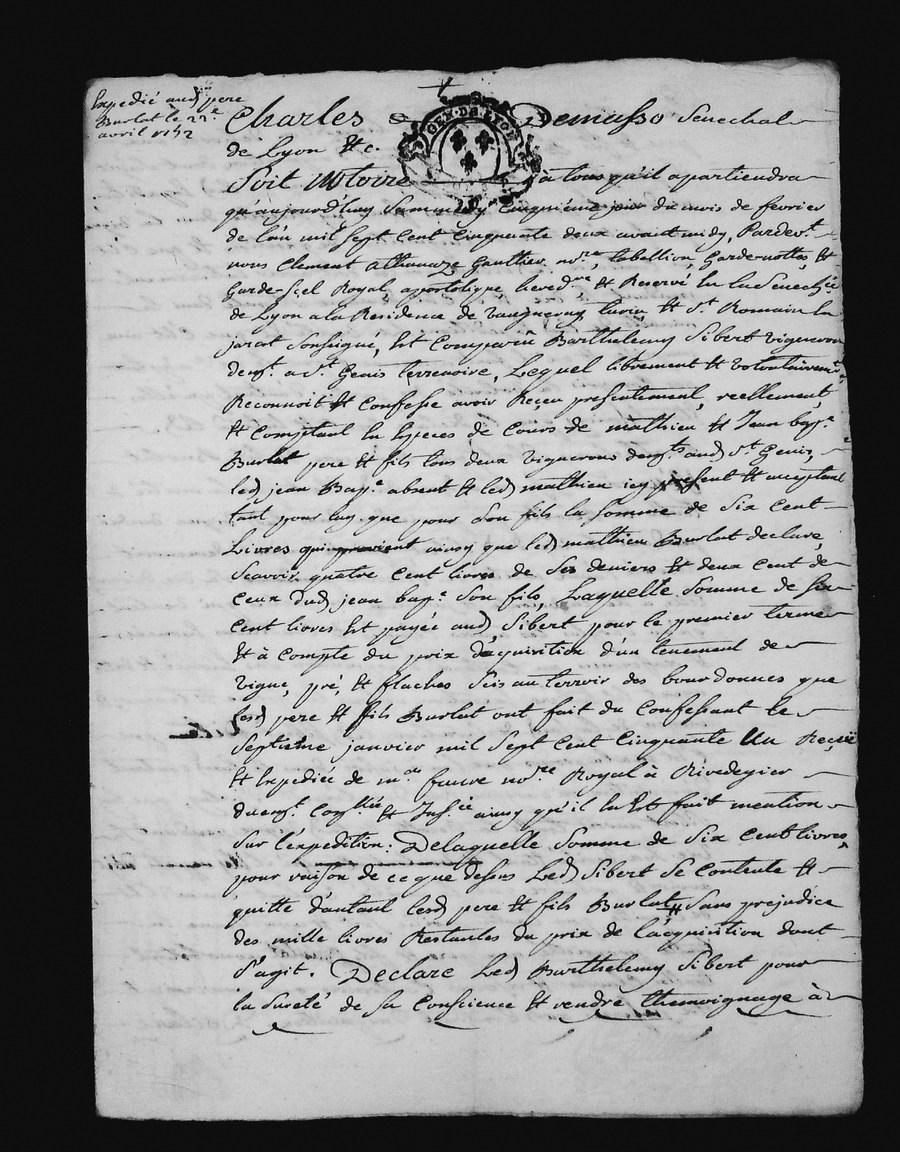 Expedié aud pere
Burlat le 22e
avril 1752
GEN. DE LYON
Charles Demasso Senechal
de Lyon &c.
Soit Notoire à tous qu'il apartiendra
qu'aujourdhuy Sammedy Cinquième jour du mois de fevrier
de l'an mil sept cent cinquante deux avant midy, Pardevt
nous Clement Athanaze Gaultier nore, tabellion Gardenottes, &
Garde-Scel Royal, apostolique, heredre & Reservé En la Senechée
de Lyon a la Residence de taluyers & St Romain En
jarat Soussigné, Est Comparû Barthelemy Sibert vigneron
demt a St Genis terrenoire, Lequel librement & volontairement
Reconnoit & Confesse avoir Reçeu presentement, reellement,
& Comptant En Especes de Cours de mathieu & Jean bapte
Burlat pere & fils tous deux vignerons demts aud St Genis,
led jean Bapte absent & led mathieu icy present & acceptant
tant pour luy que pour Son fils la Somme de Six Cent
Livres qui provient ainsy que led mathieu Burlat declare,
Scavoir quatre Cent livres de Ses deniers & deux Cent de
Ceux dud jean bapte Son fils, Laquelle Somme de Six
Cent livres Est payée aud Sibert pour le premier terme
& à Compte du prix dacquisition d'un tenement de
vigne, pré, & flaches Sis au terroir des bourdonnes que
lesd pere & fils Burlat ont fait du Confessant le
Septième janvier mil Sept Cent Cinquante Un Reçuë
& Expediée de me faure nore Royal à Rivedegier
duemt Conllée & Insée ainsy qu'il En Est fait mention
Sur l'expedition: Delaquelle Somme de Six Cent livres,
pour raison de ce que dessus Led Sibert Se Contente &
quitte d'autant lesd pere & fils Burlat, Sans prejudice
des mille livres Restantes du prix de l'acquisition dont
S'agit. Declare Led Barthelemy Sibert pour
la Sureté de Sa Conscience & rendre themoignage à